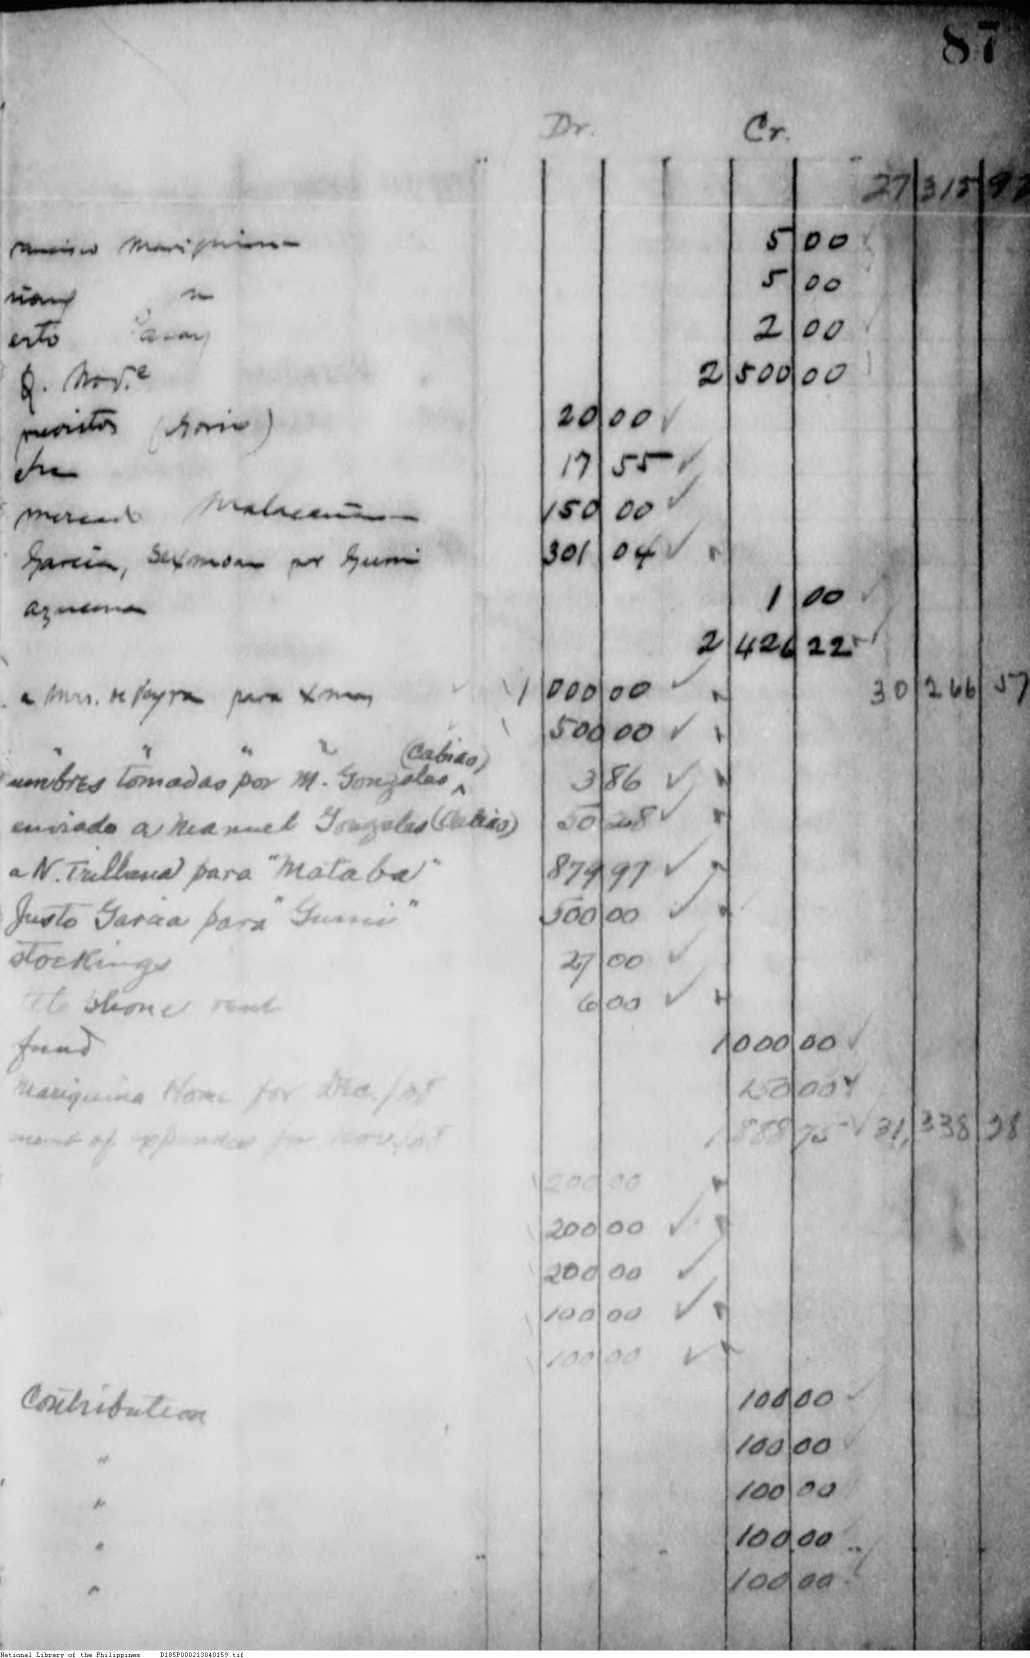 87
Dr. Cr.
27 315 92
Mariquina 5 00
" 5 00
erto 2 00
Q. Nov.e 2 500 00
(Gorio) 20 00
17 55
mercado Malacañan 150 00
Garcia, Sexmoan por Gumi 301 04
azucena 1 00
2 426 22
a Mrs. de Veyra para Xmas 1 000 00 30 266 57
" " " " 500 00
umbres tomadas por M. Gonzales (Cabiao) 3 86
enviado a Manuel Gonzales (Cabiao) 50 28
a N. Trillana para "Mataba" 879 97
Justo Garcia para "Gumi" 500 00
stockings 27 00
telephone rent 6 00
fund 1 000 00
Mariquina Home for Dec./08 250 00
ment of for Nov./08 1 888 75 31,338 28
200 00
200 00
200 00
100 00
100 00
Contribution 100 00
" 100 00
" 100 00
" 100 00
" 100 00
National Library of the Philippines D185P000213040159.tif